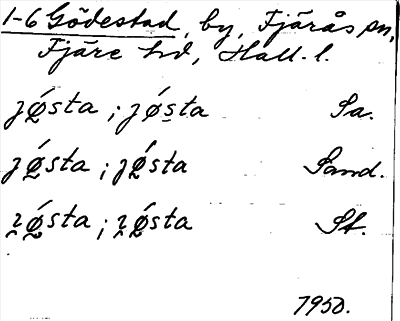 1-6 Gödestad, by, Fjärås sn,
Fjäre hd, Hall. l.
jø̀sta ; jǿsta Sa.
jǿsta ; jǿsta Sand.
ɪǿsta ; ɪǿsta St.
1950.